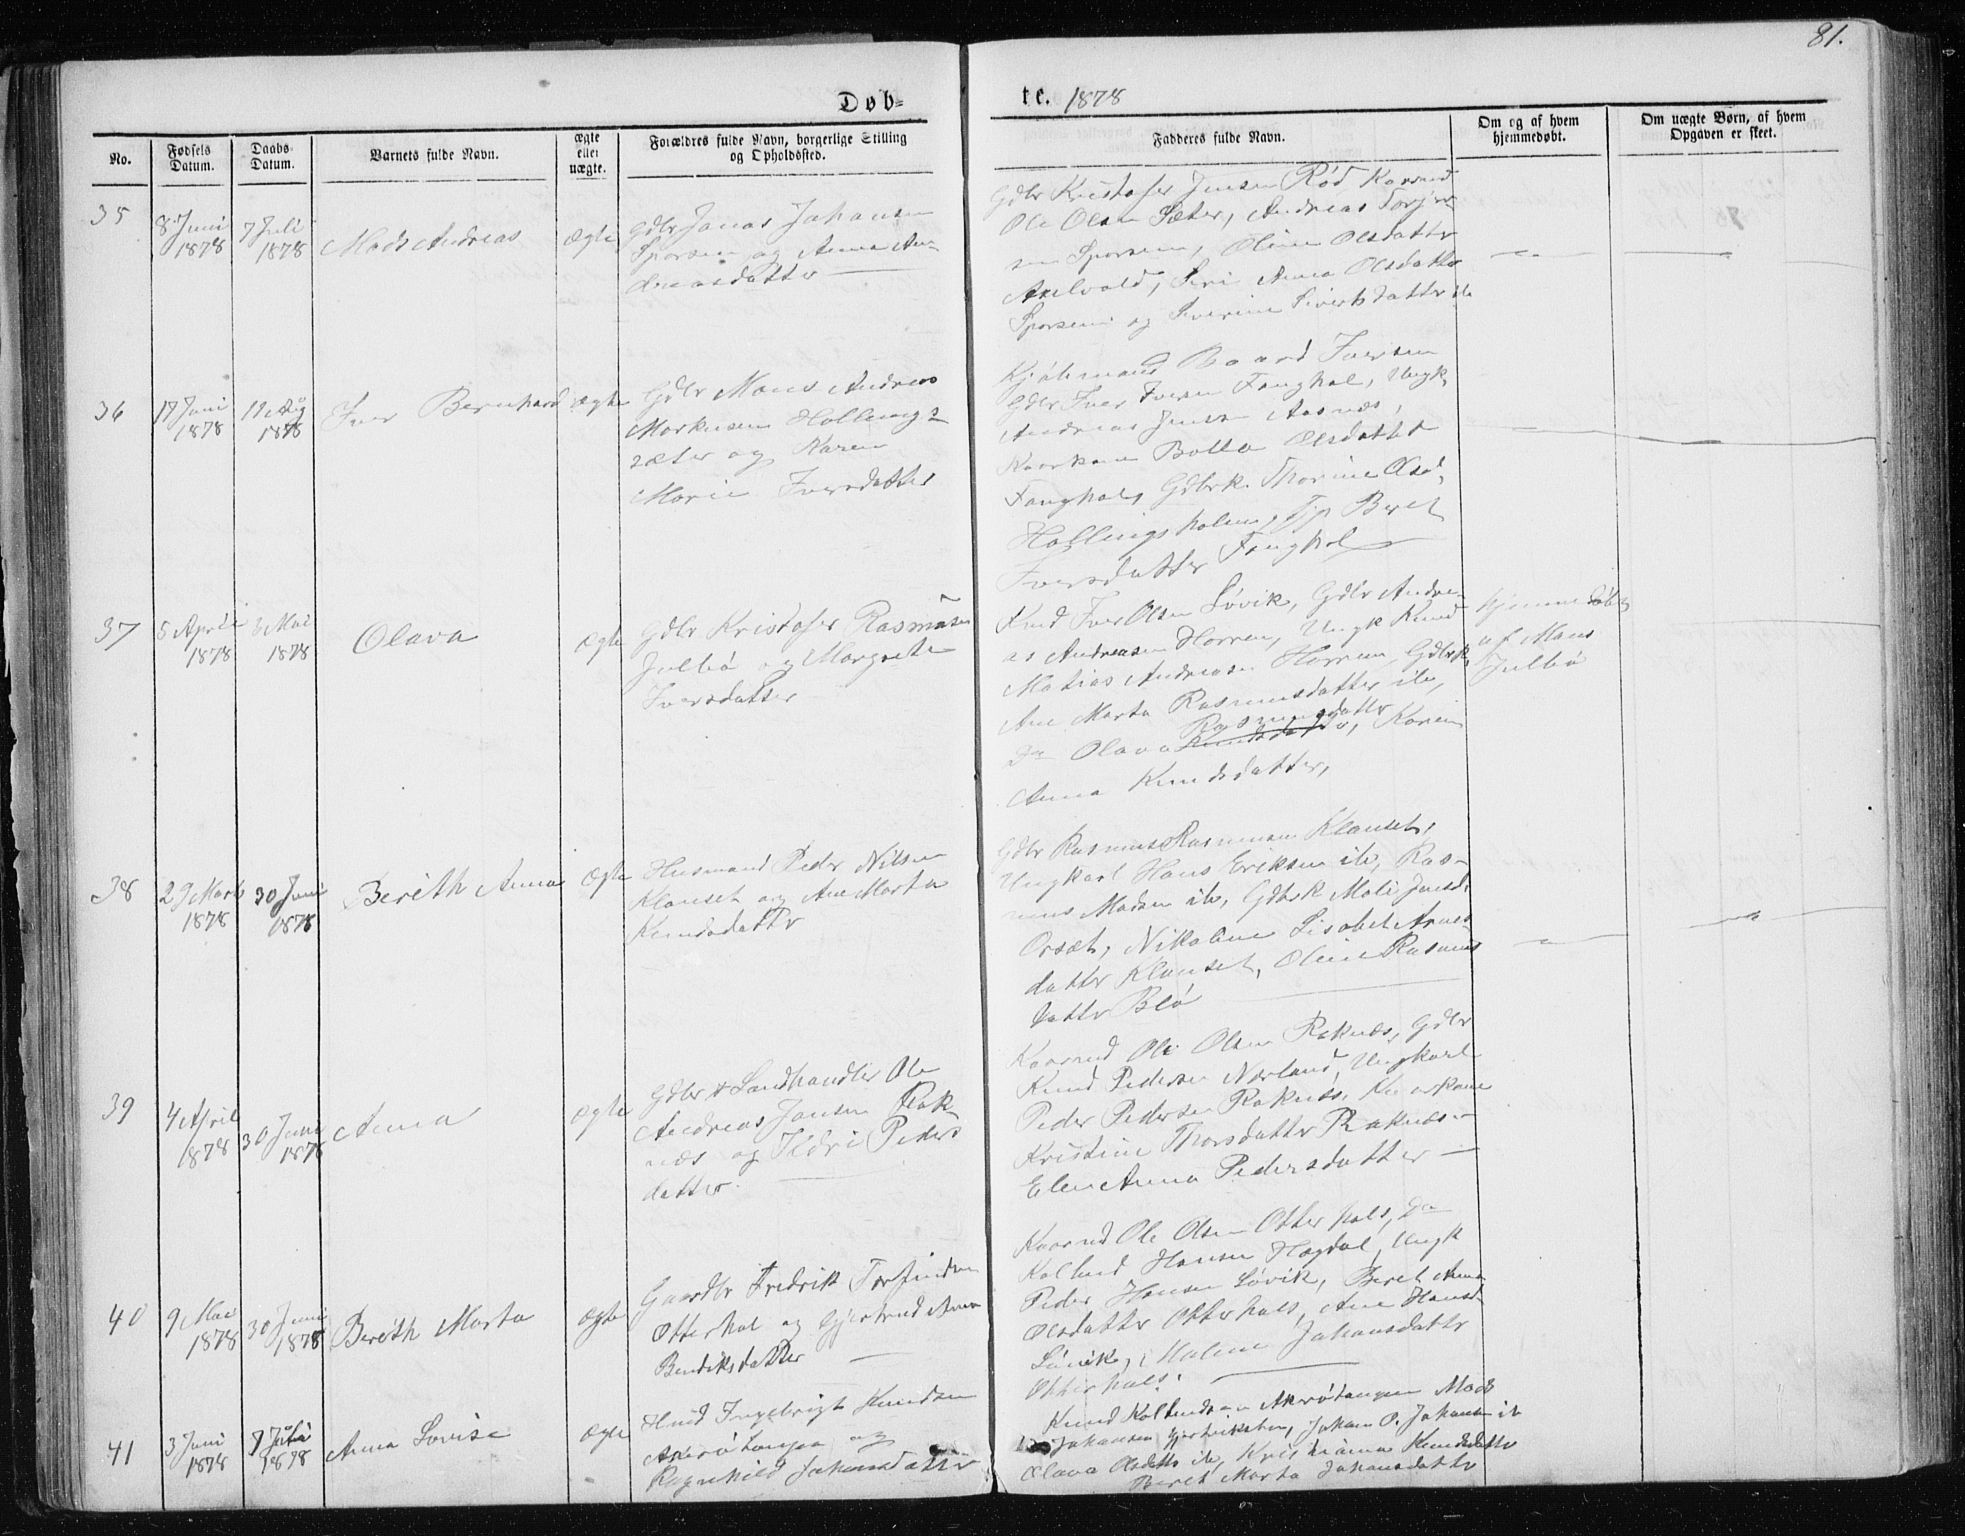 81.
Døb=
te. 1878
No.
Fødsels Datum.
Daabs Datum.
Barnets fulde Navn.
ægte eller uægte.
Forældres fulde Navn, borgerlige Stilling og Opholdssted.
Fadderes fulde Navn.
Om og af hvem hjemmedøbt.
Om uægte Børn, af hvem Opgaven er skeet.
35
8 Juni 1878
7 Juli 1878
Mads Andreas
Ægte
Gdbr Jonas Johansen
Sporsem og Anna An-
dreasdatter
Gdbr Kristofer Jensen Rød
Ole Olsen Sæter, Andreas
sen Sporsem, Oline Olsdatter
Anna Olsdatter
Sporsem og Severine Siverts datter
36
17 Juni 1878
1878
Iver Bernhard
ægte
Gdbr Mons Andreas
Markusen Hollings-
sæter og Karen
Marie Iversdatter
Baard Iversen
Gdbr Iver Iversen Fanghol, Ungk.
Andreas Jensen Aasnæs,
Olsdatter
Fanghol, Gdbrk. Thorine Olsd.
Hollingsholm, Beret
Iversdatter Fanghol
37
5 April 1878
3 Mai 1878
Olava
ægte
Gdbr Kristofer Rasmusen
Julbø og Margrete
Iversdatter
Iver Olsen Løvik, Gdbr Andre-
as Andreasen Horrem, Ungk Knud
Matias Andreasen Horrem, Gdbrk.
Ane Marta Rasmusdatter ib,
Rasmusdatter
Do Olava Knudsdatter, Karen
Anna Knudsdatter,
hjemmedøbt
af Mons
Julbø
38
29 Marts 1878
30 Juni 1878
Berith Anna
Ægte
Husmand Peder Nilsen
Klauset og Ane Marta
Knudsdatter
Gdbr Rasmus Rasmusen Klauset,
Ungkarl Hans Eriksen ib, Ras-
mus Madsen ib, Gdbrk Mali Jonsd.
Orset, Nikoline Lisabet Arnes-
datter Klauset, Oline Rasmus
datter Blø
39
4 April 1878
30 Juni 1878
Anna
ægte
Gdbr & Landhandler Ole
Andreas Jansen Rak-
næs og Ildri Peders
datter.
Kaarmd Ole Olsen Raknæs, Gdbr
Knud Pedersen Nerland, Ungkarl
Peder Pedersen Raknæs, Kaarkone
Kristine Thorsdatter Raknæs
Elen Anna Pedersdatter
40
9 Mai 1878
30 Juni 1878
Berith Marta
ægte
Gaardbr Fredrik Torfindsen
Otterhal og Gjertrud Anna
Bendiksdatter
Kaarmd Ole Olsen Otterhals, Do
Kolbend Hansen Hagdal, Ungk
Peder Hansen Løvik, Beret Anna
Olsdatter Otterhals, Ane Hansd.
Løvik, Malene Johansdatter
Otterhals.
41
3 Juni 1878
7 Juli 1878
Anna Lovise
ægte
Husmd Ingebrigt Knudsen
Akerøtangen og
Ragnhild Johansdatter
Knud Kolbendsen Akerøtangen Mads
Johansen, Johan P. Johansen ib
Olava Olsdatter ib, Kristianna Knudsdatter
Beret Marta Johansdatter